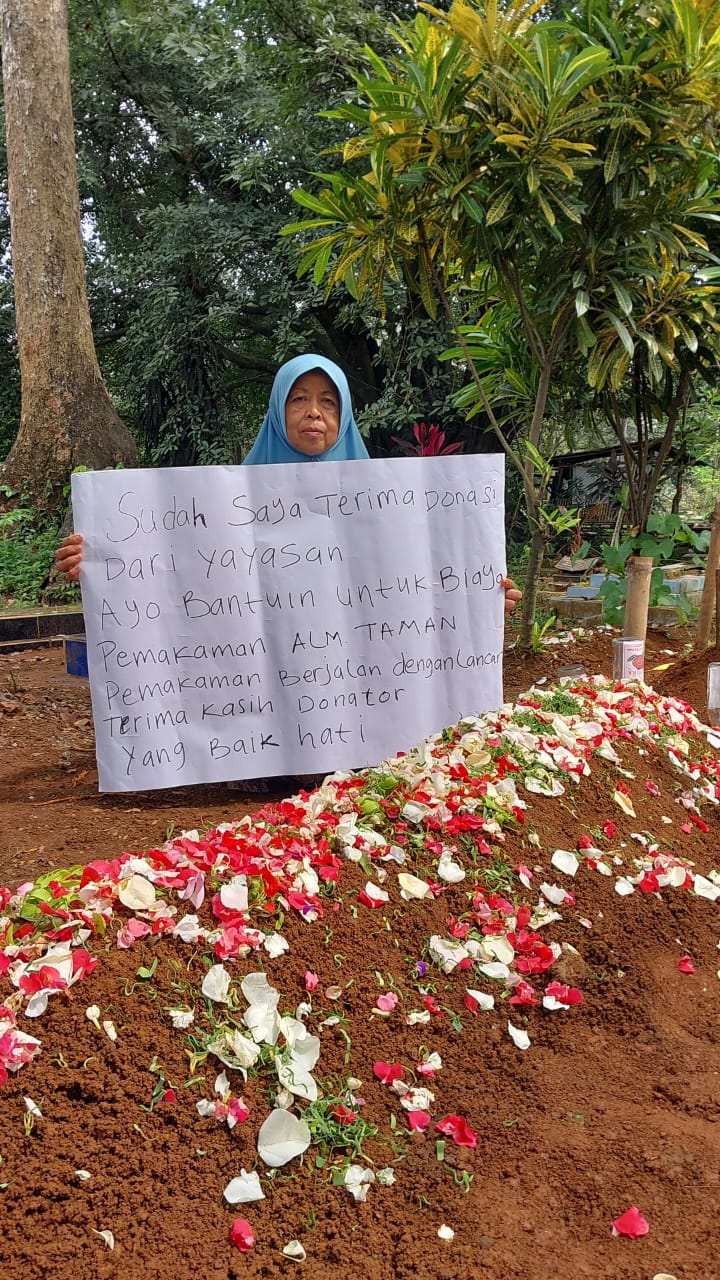 Sudah Saya Terima Donasi
Dari Yayasan
Ayo Bantuin untuk Biaya
Pemakaman ALM. TAMAN
Pemakaman Berjalan dengan Lancar
Terima Kasih Donator
Yang Baik hati